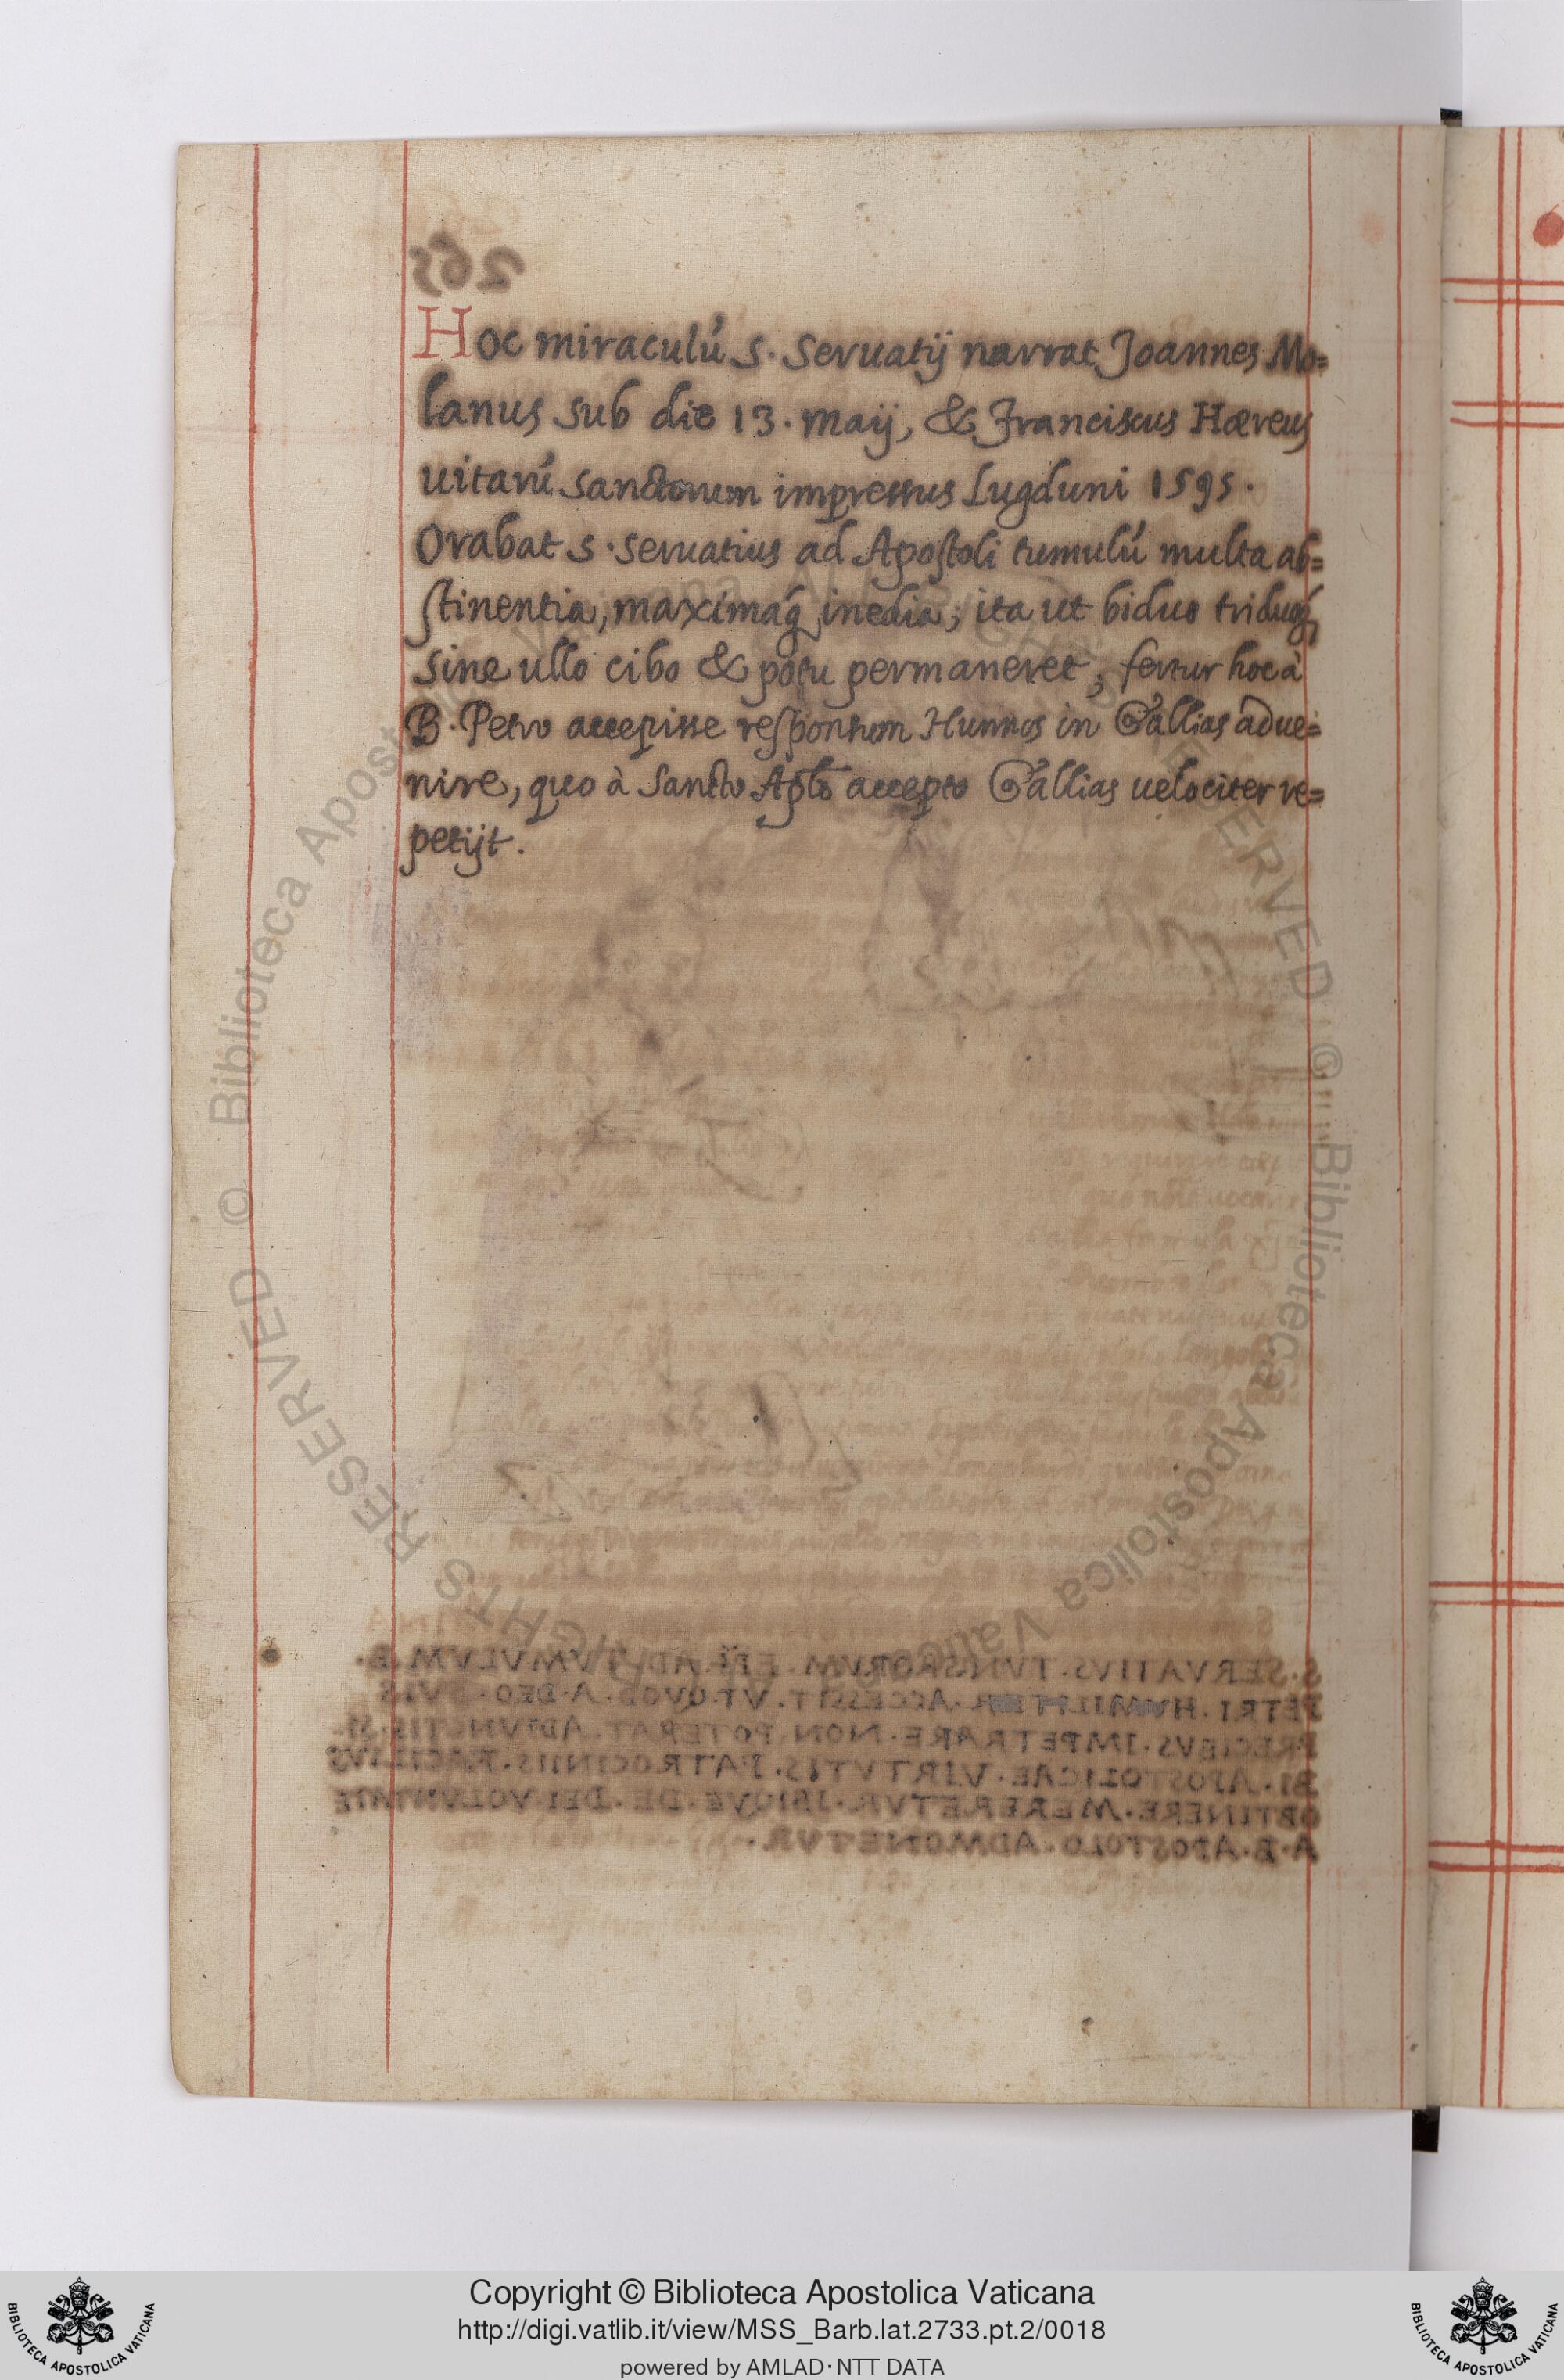 Hoc miraculú S. Seruatij narrat Joannes Mo=
lanus sub die 13. Maij, & Franciscus Hæreus
uitarú Sanctorum impressus Lugduni 1595.
Orabat S. Seruatius ad Apostoli tumulú multa ab=
stinentia, maximaq́ inedia; ita ut biduo triduoq́
sine ullo cibo & potu permaneret; fertur hoc à
B. Petro accepisse responsum Hunnos in Gallias adue=
nire, quo à Sancto Aplō accepto Gallias uelociter re=
petijt.
265
S. SERVATIVS. TVNGRORVM. EPI. AD. TVMVLVM. B.
PETRI. HVMILITER. ACCESSIT. VT. QVOD. A. DEO. SVIS
PRECIBVS. IMPETRARE. NON. POTERAT. ADIVNCTIS. SI-
BI. APOSTOLICAE. VIRTVTIS. PATROCINIIS. FACILIVS
OBTINERE. MERERETVR. IBIQVE. DE. DEI VOLVNTATE
A. B. APOSTOLO. ADMONETVR.
© Biblioteca Apostolica Vaticana ALL RIGHTS RESERVED
© Biblioteca Apostolica Vaticana ALL RIGHTS RESERVED
Copyright © Biblioteca Apostolica Vaticana
http://digi.vatlib.it/view/MSS_Barb.lat.2733.pt.2/0018
powered by AMLAD·NTT DATA
BIBLIOTECA APOSTOLICA VATICANA
BIBLIOTECA APOSTOLICA VATICANA